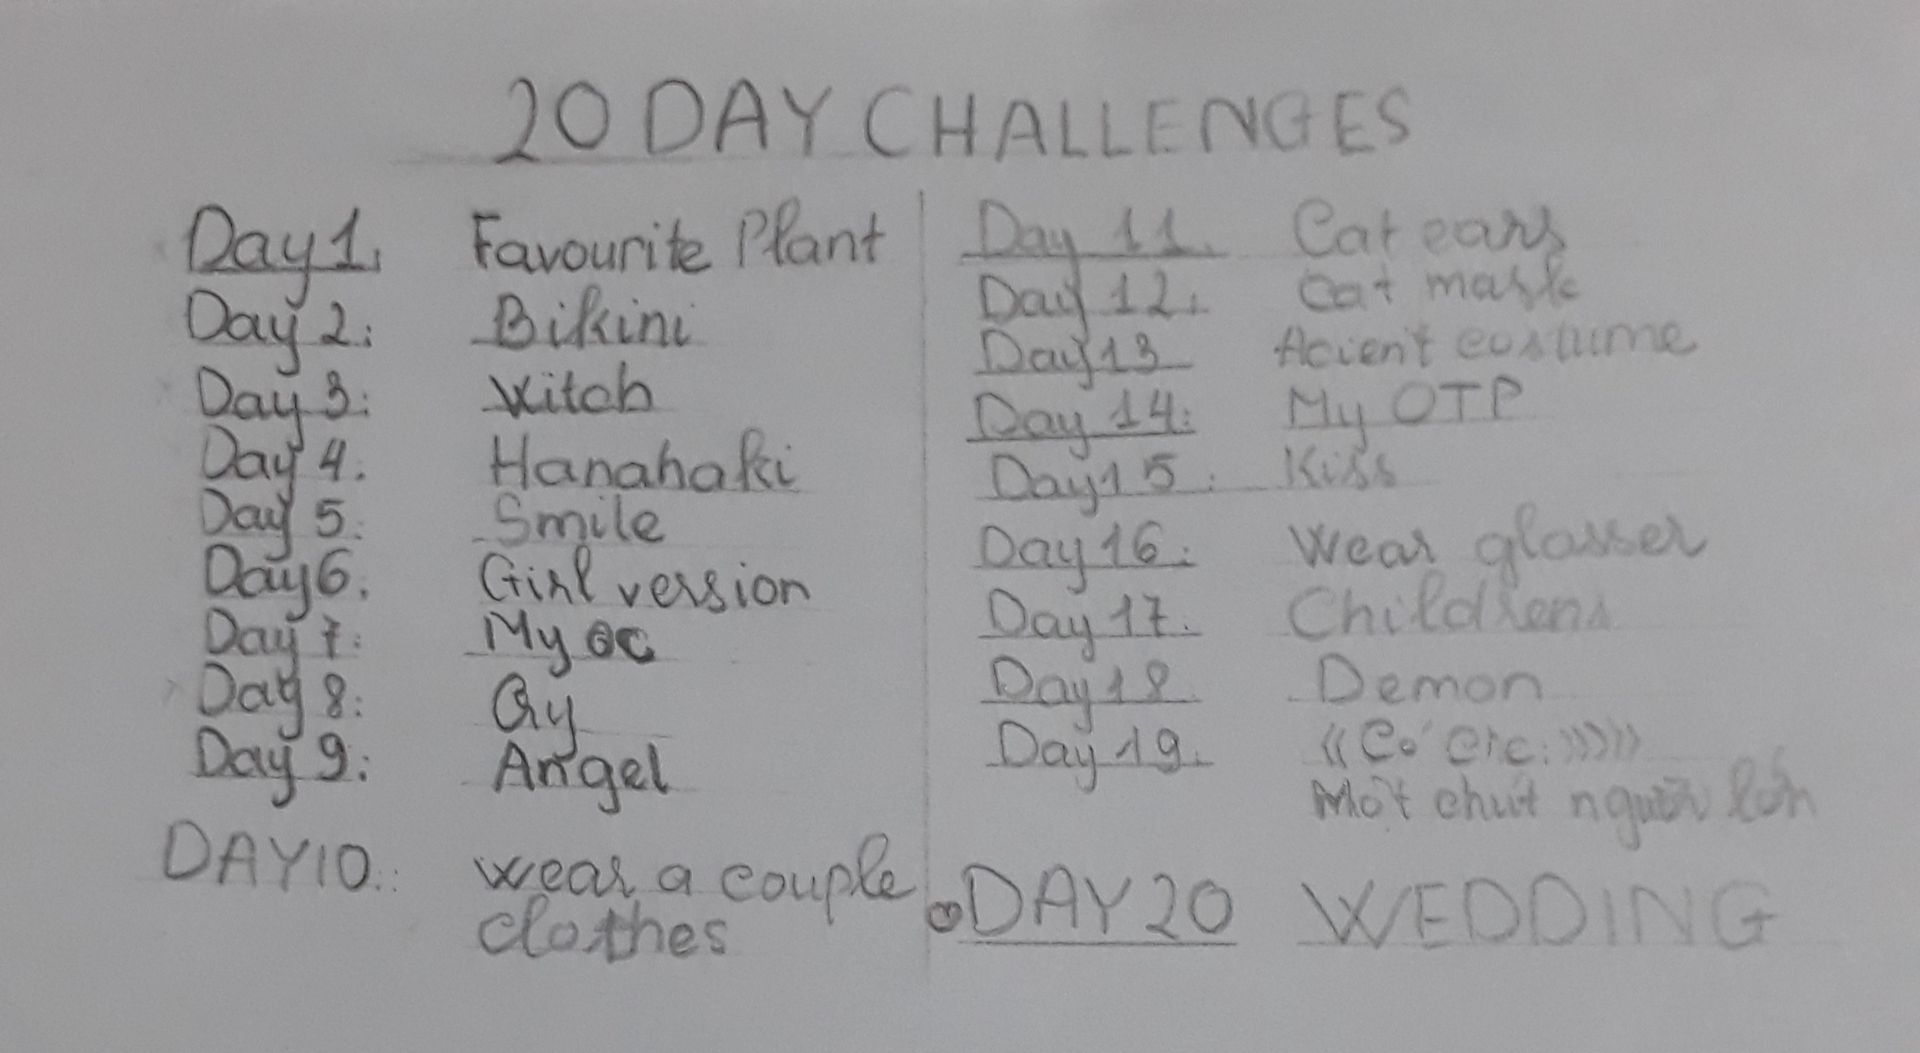 20 DAY CHALLENGES
Day 1. Favourite Plant
Day 2: Bikini
Day 3: Witch
Day 4: Hanahaki
Day 5: Smile
Day 6: Girl version
Day 7: My OC
Day 8: Cry
Day 9: Angel
DAY 10: wear a couple
clothes
Day 11. Cat ears
Day 12: Cat mask
Day 13 Acient costume
Day 14: My OTP
Day 15: Kiss
Day 16: Wear glasses
Day 17. Childrens
Day 18 Demon
Day 19.
Một chút người lớn
DAY 20 WEDDING